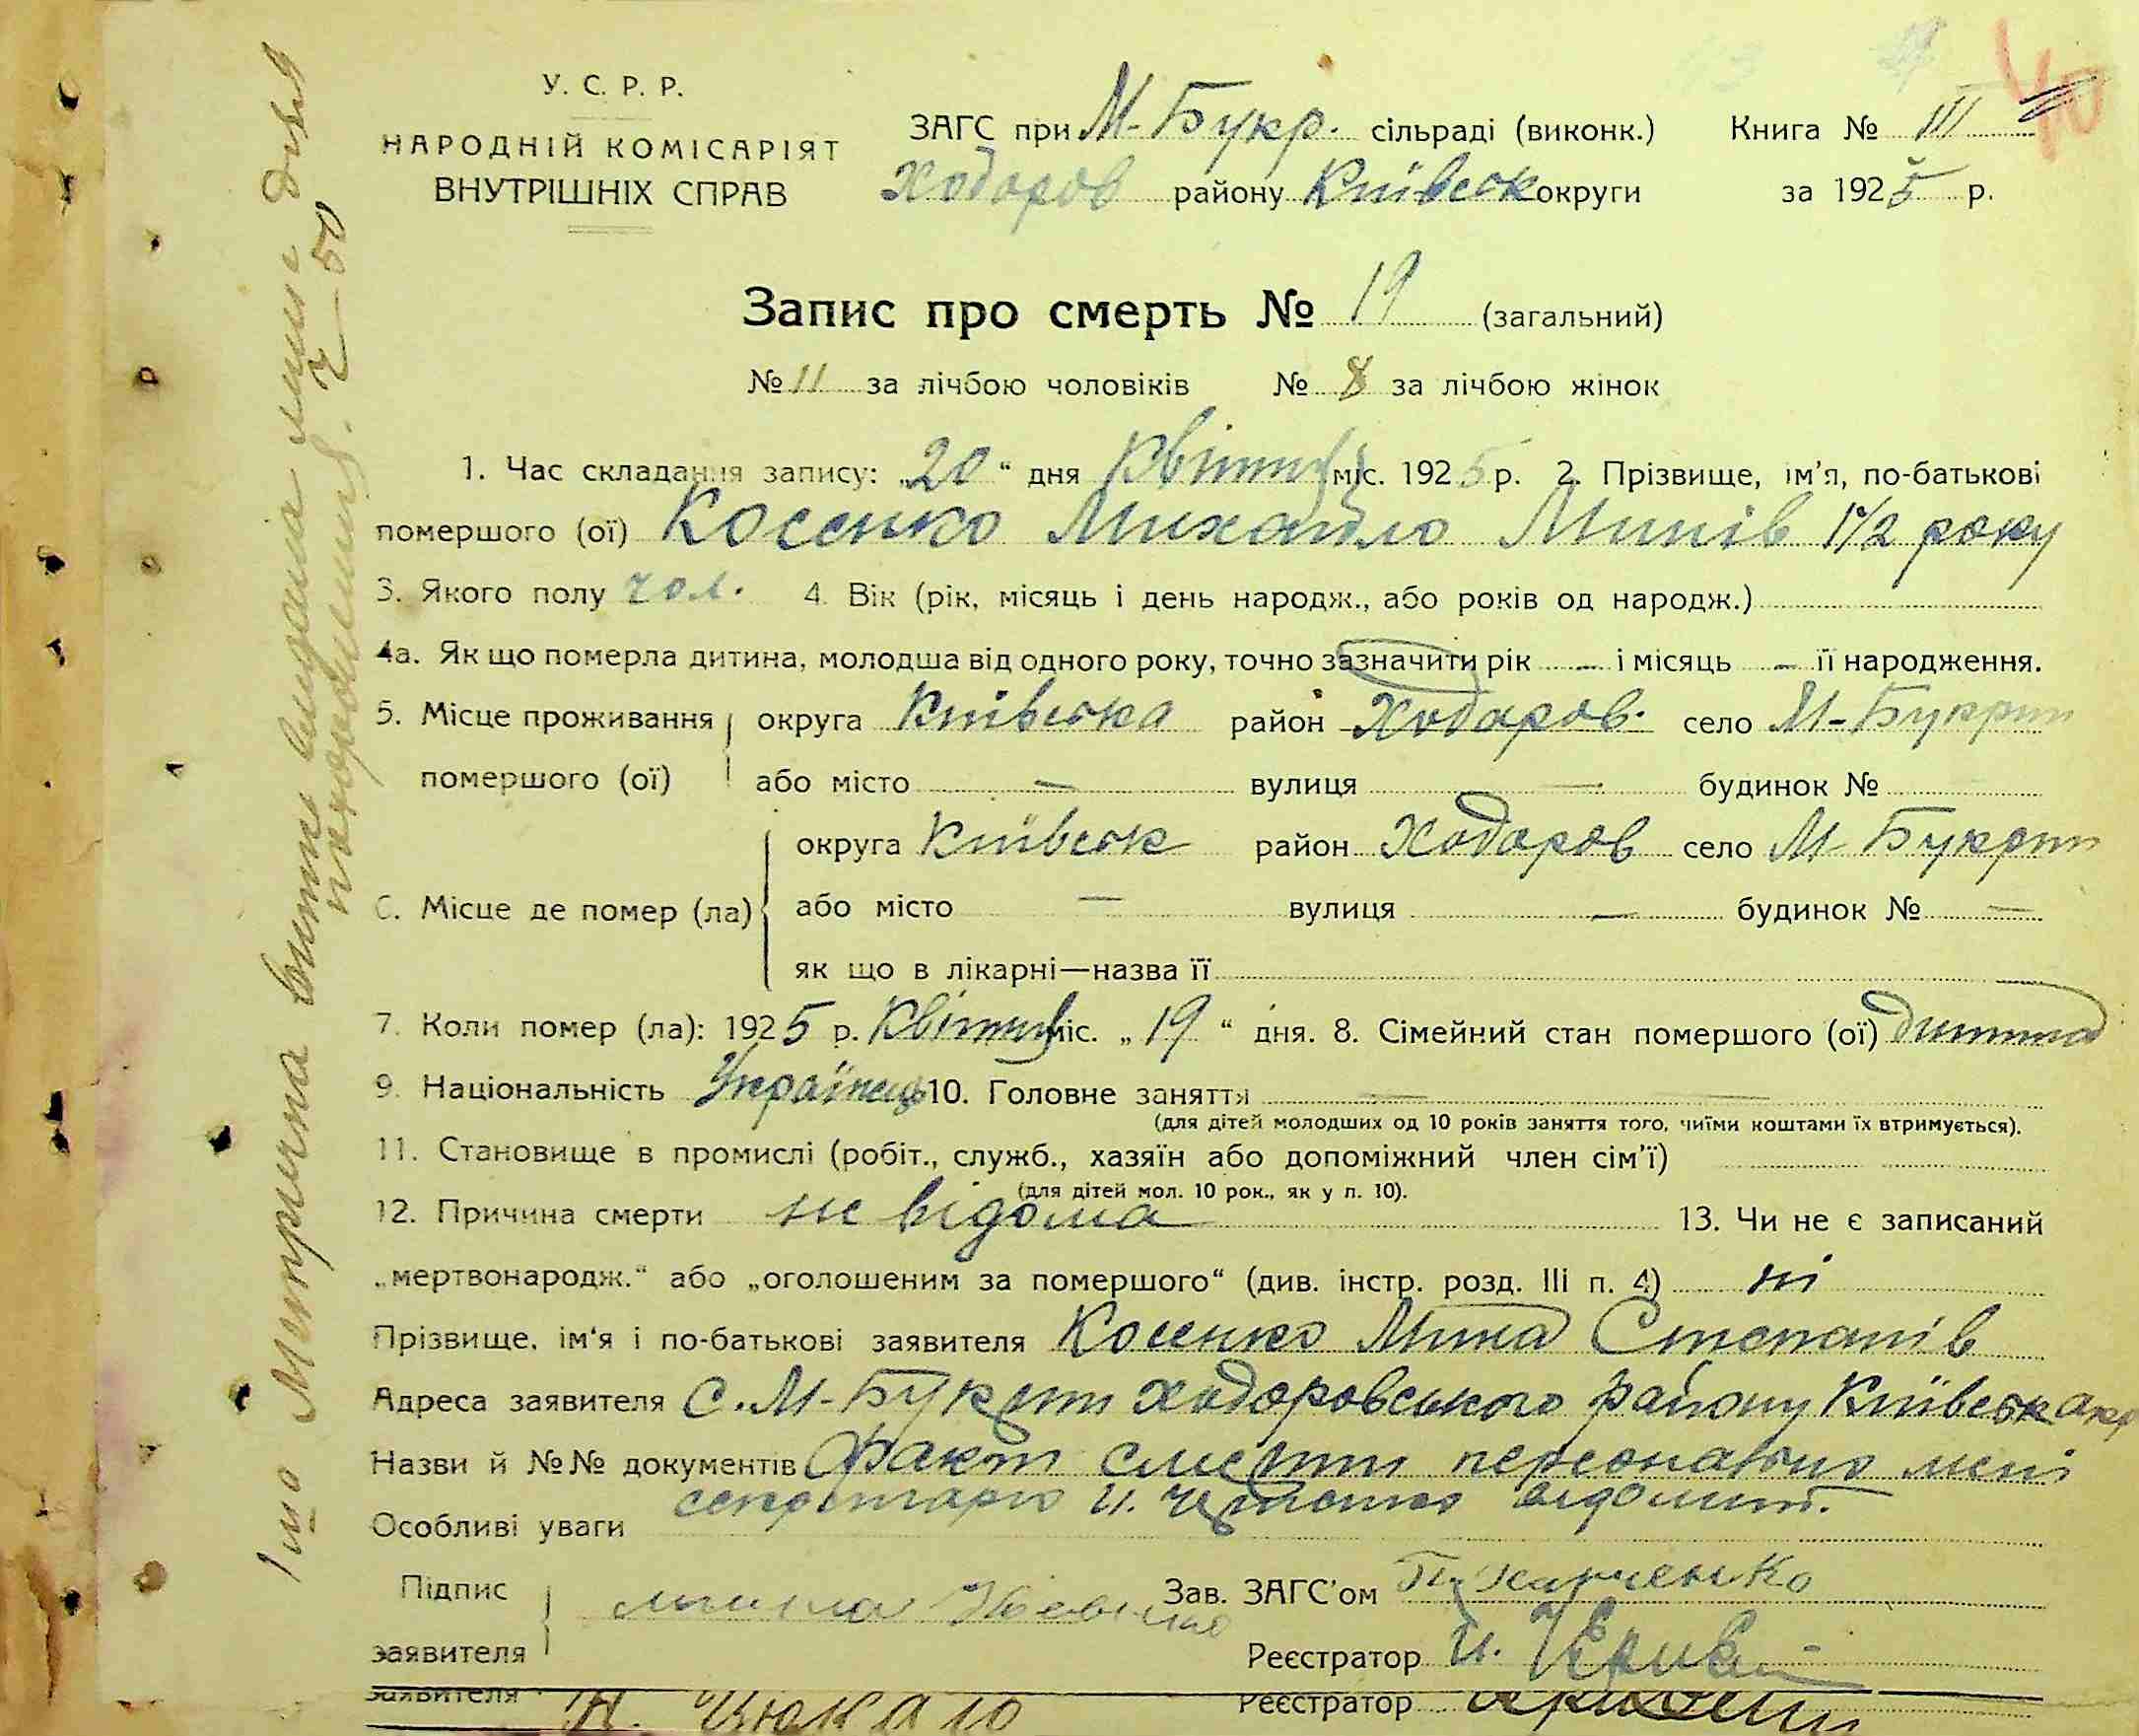 У. С. Р. Р.
НАРОДНІЙ КОМІСАРІЯТ
ВНУТРІШНІХ СПРАВ
ЗАГС при М-Букр. сільраді (виконк.) Книга № III
Ходоров району Київськ округи за 1925 р.
40
Запис про смерть № 19 (загальний)
№ 11 за лічбою чоловіків № 8 за лічбою жінок
1. Час складання запису: „20“ дня Квітня міс. 1925 р. 2. Прізвище, ім'я, по-батькові
помершого (ої) Косенко Михайло Минів 1½ року
3. Якого полу чол. 4. Вік (рік, місяць і день народж., або років од народж.)
4а. Як що померла дитина, молодша від одного року, точно зазначити рік — і місяць — її народження.
5. Місце проживання округа Київська район Ходоров. село М-Букрин
помершого (ої) або місто — вулиця — будинок №
округа Київськ район Ходоров село М-Букрин
6. Місце де помер (ла) або місто — вулиця — будинок № —
як що в лікарні—назва її
7. Коли помер (ла): 1925 р. Квітня міс. „19“ дня. 8. Сімейний стан помершого (ої) дитина
9. Національність Українець 10. Головне заняття —
(для дітей молодших од 10 років заняття того, чиїми коштами їх втримується).
11. Становище в промислі (робіт., служб., хазяїн або допоміжний член сім'ї)
(для дітей мол. 10 рок., як у п. 10).
12. Причина смерти не відома 13. Чи не є записаний
„мертвонародж.“ або „оголошеним за помершого“ (див. інстр. розд. III п. 4) ні
Прізвище, ім'я і по-батькові заявителя Косенко Мина Степанів
Адреса заявителя С. М-Букрин Ходоровського району Київськ окр
Назви й №№ документів Факт смерти персонально мені
секретарю И. відомий.
Особливі уваги
Підпис
заявителя
Зав. ЗАГС'ом
Реєстратор И.
заявителя
Реєстратор
Метрична випись видана лише дня